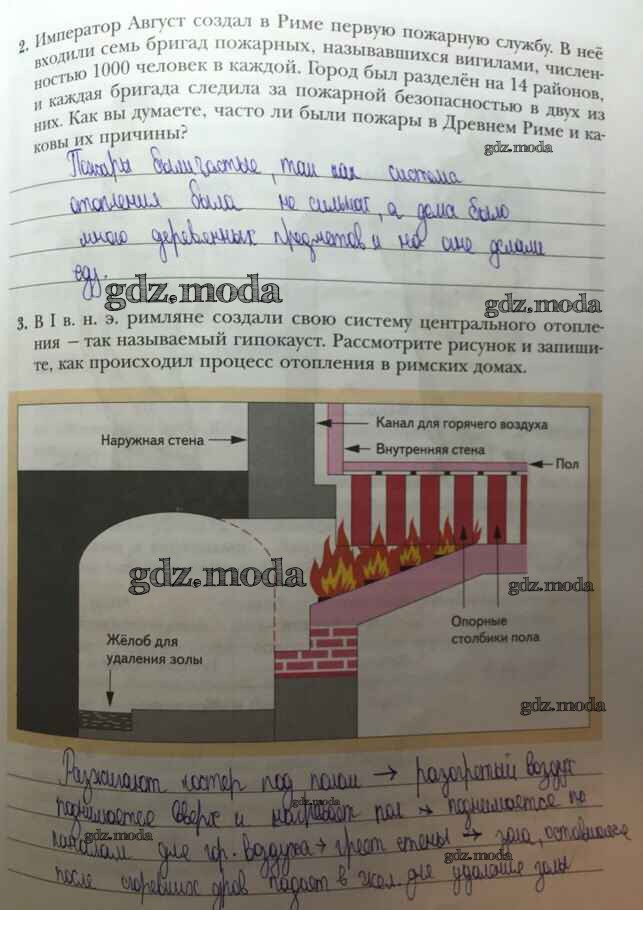 2. Император Август создал в Риме первую пожарную службу. В неё
входили семь бригад пожарных, называвшихся вигилами, числен-
ностью 1000 человек в каждой. Город был разделён на 14 районов,
и каждая бригада следила за пожарной безопасностью в двух из
них. Как вы думаете, часто ли были пожары в Древнем Риме и ка-
ковы их причины?
gdz.moda
Пожары были частые, так как система
отопления была не сильной, а дома было
много деревянных предметов и на огне делали
еду.
gdz.moda
gdz.moda
3. В I в. н. э. римляне создали свою систему центрального отопле-
ния – так называемый гипокауст. Рассмотрите рисунок и запиши-
те, как происходил процесс отопления в римских домах.
Канал для горячего воздуха
Наружная стена
Внутренняя стена
Пол
gdz.moda
gdz.moda
Опорные
столбики пола
Жёлоб для
удаления золы
gdz.moda
Разжигают костер под полом → разогретый воздух
поднимается вверх и нагревает пол → поднимается по
gdz.moda
каналам для гор. воздуха → греет стены → зола, оставшаяся
gdz.moda
gdz.moda
после сгоревших дров падает в жел. для удаления золы